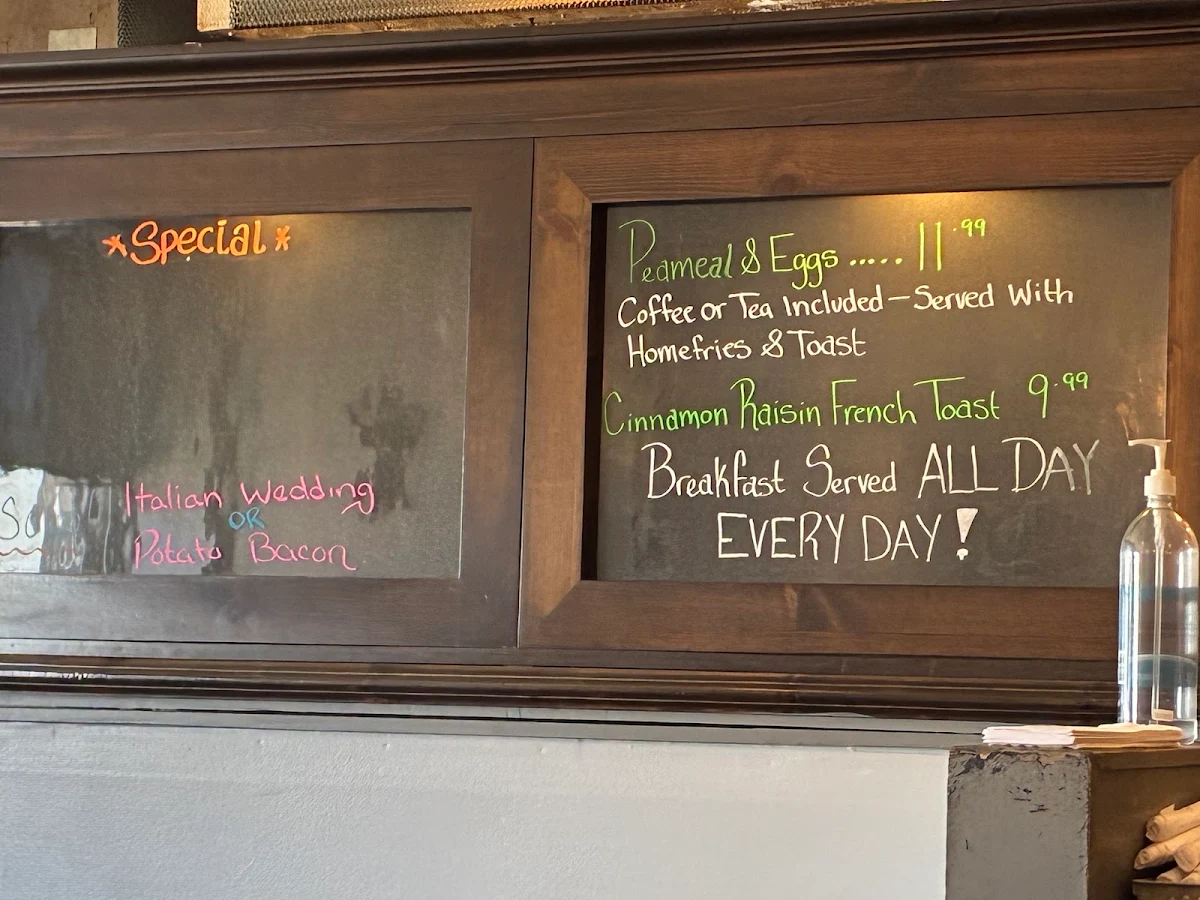 *Special*
Italian Wedding
OR
Potato Bacon
Peameal & Eggs ..... 11.99
Coffee or Tea Included - Served With
Homefries & Toast
Cinnamon Raisin French Toast 9.99
Breakfast Served ALL DAY
EVERY DAY!